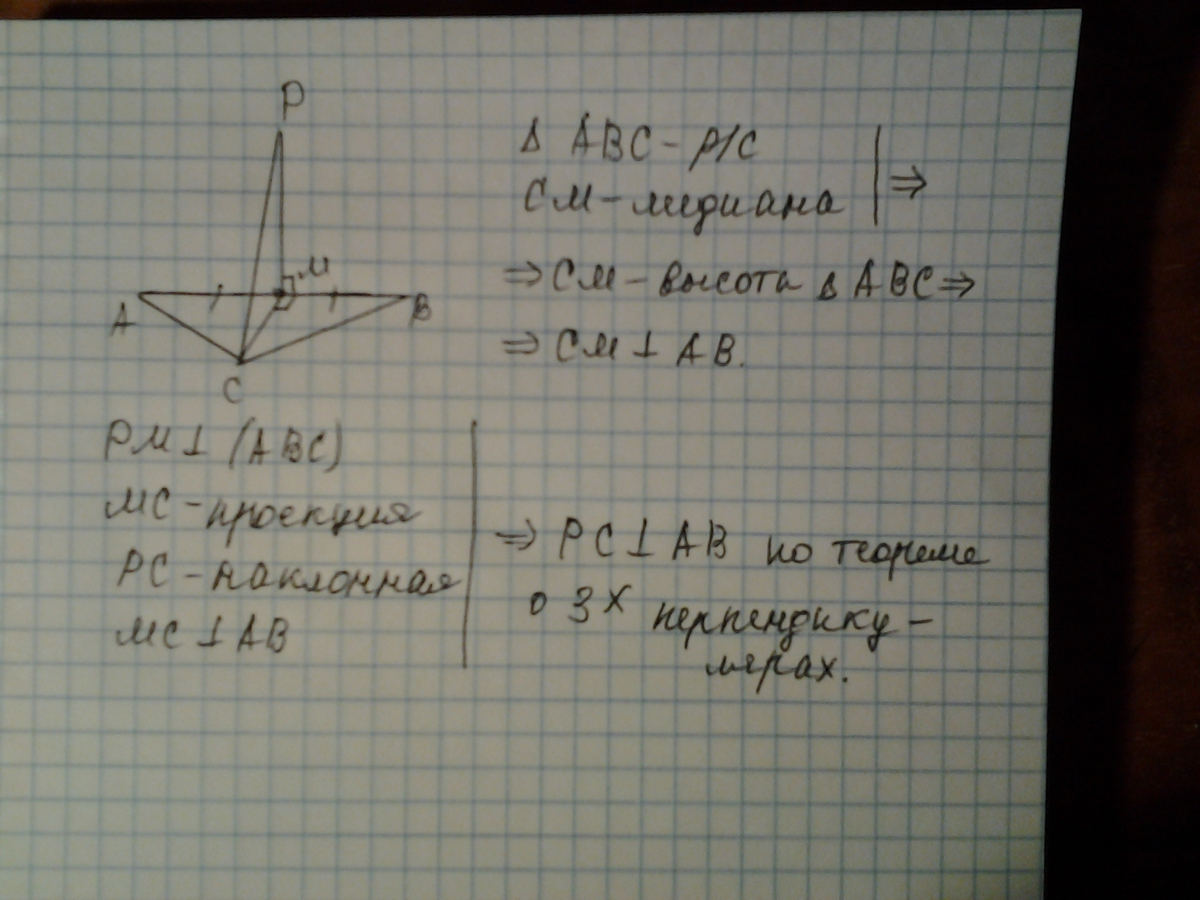 P
M
A
B
C
Δ ABC - р/с
CM - медиана | ⇒
⇒ CM - высота Δ ABC ⇒
⇒ CM ⊥ AB.
PM ⊥ (ABC)
MC - проекция
PC - наклонная
MC ⊥ AB
⇒ PC ⊥ AB по теореме
о 3х перпендику-
лярах.